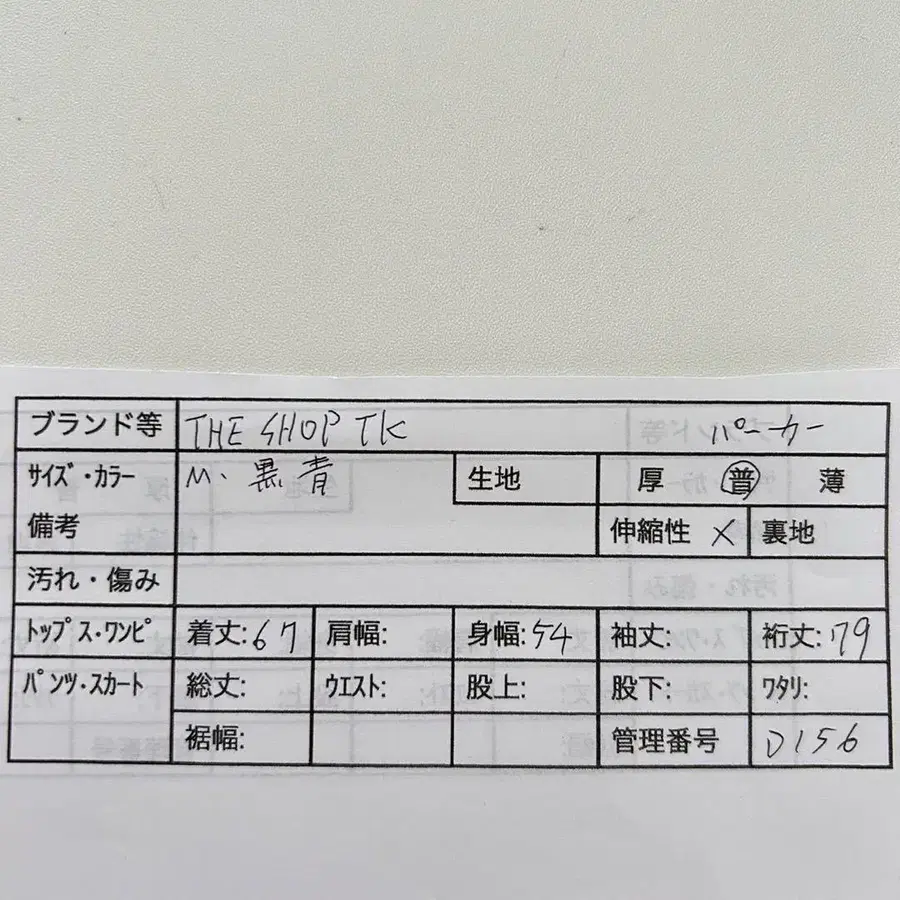 ブランド等 THE SHOP TK パーカー
サイズ・カラー M. 黒青 生地 厚 普 薄
備考 伸縮性 × 裏地
汚れ・傷み
トップス・ワンピ 着丈:67 肩幅: 身幅:54 袖丈: 裄丈:79
パンツ・スカート 総丈: ウエスト: 股上: 股下: ワタリ:
裾幅: 管理番号 D156